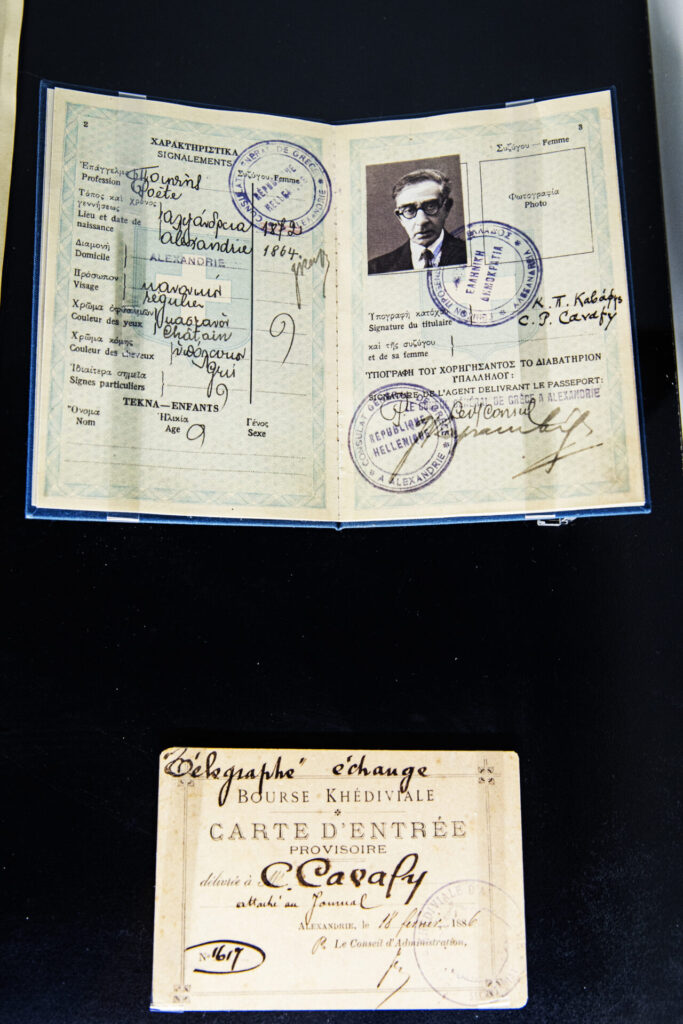 2
ΧΑΡΑΚΤΗΡΙΣΤΙΚΑ
SIGNALEMENTS
Συζύγου-Femme
Ἐπάγγελμα Ποιητής
Profession Poète
Τόπος καὶ χρόνος
γεννήσεως Ἀλεξάνδρεια 1872
Lieu et date de Alexandrie 1864.
naissance
Διαμονή
Domicile ALEXANDRIE
Πρόσωπον κανονικόν
Visage régulier
Χρῶμα ὀφθαλμῶν καστανοί
Couleur des yeux châtain
Χρῶμα κόμης
Couleur des cheveux gris
Ἰδιαίτερα σημεῖα
Signes particuliers
ΤΕΚΝΑ—ENFANTS
Ὄνομα Ἡλικία Γένος
Nom Age Sexe
CONSULAT GENERAL DE GRÈCE
A ALEXANDRIE
3
Συζύγου — Femme
Φωτογραφία
Photo
ΕΛΛΗΝΙΚΗ
ΔΗΜΟΚΡΑΤΙΑ
Ὑπογραφὴ κατόχου Κ. Π. Καβάφης
Signature du titulaire C. P. Cavafy
καὶ τῆς συζύγου
et de sa femme
ΥΠΟΓΡΑΦΗ ΤΟΥ ΧΟΡΗΓΗΣΑΝΤΟΣ ΤΟ ΔΙΑΒΑΤΗΡΙΟΝ
ΥΠΑΛΛΗΛΟΥ:
SIGNATURE DE L'AGENT DELIVRANT LE PASSEPORT:
GÉNÉRAL DE GRÈCE A ALEXANDRIE
CONSULAT GENERAL DE GRÈCE
REPUBLIQUE
HELLENIQUE
A ALEXANDRIE
"Télégraphe" échange
BOURSE KHÉDIVIALE
CARTE D'ENTRÉE
PROVISOIRE
délivrée à Mr C. Cavafy
attaché au Journal
ALEXANDRIE, le 18 février 1886
P. Le Conseil d'Administration,
No 1617